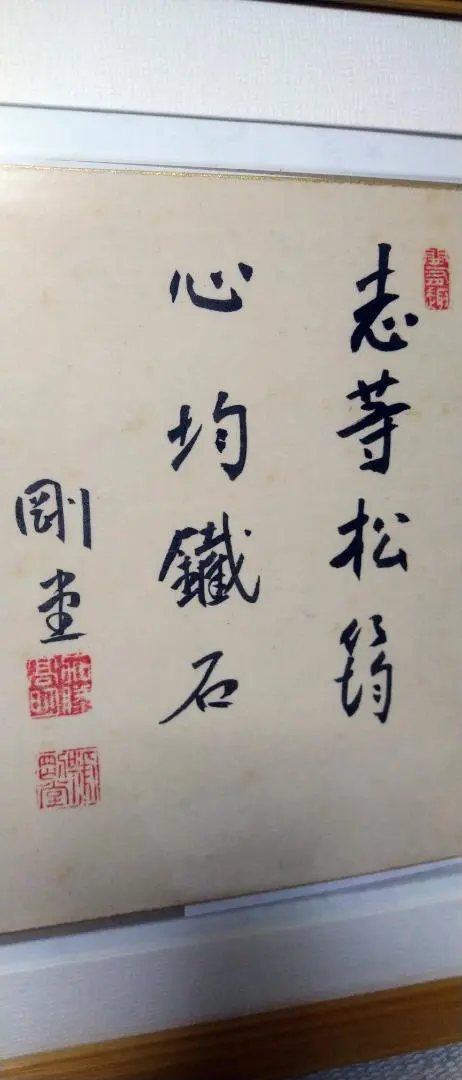 志等松筠
心均鐵石
剛堂